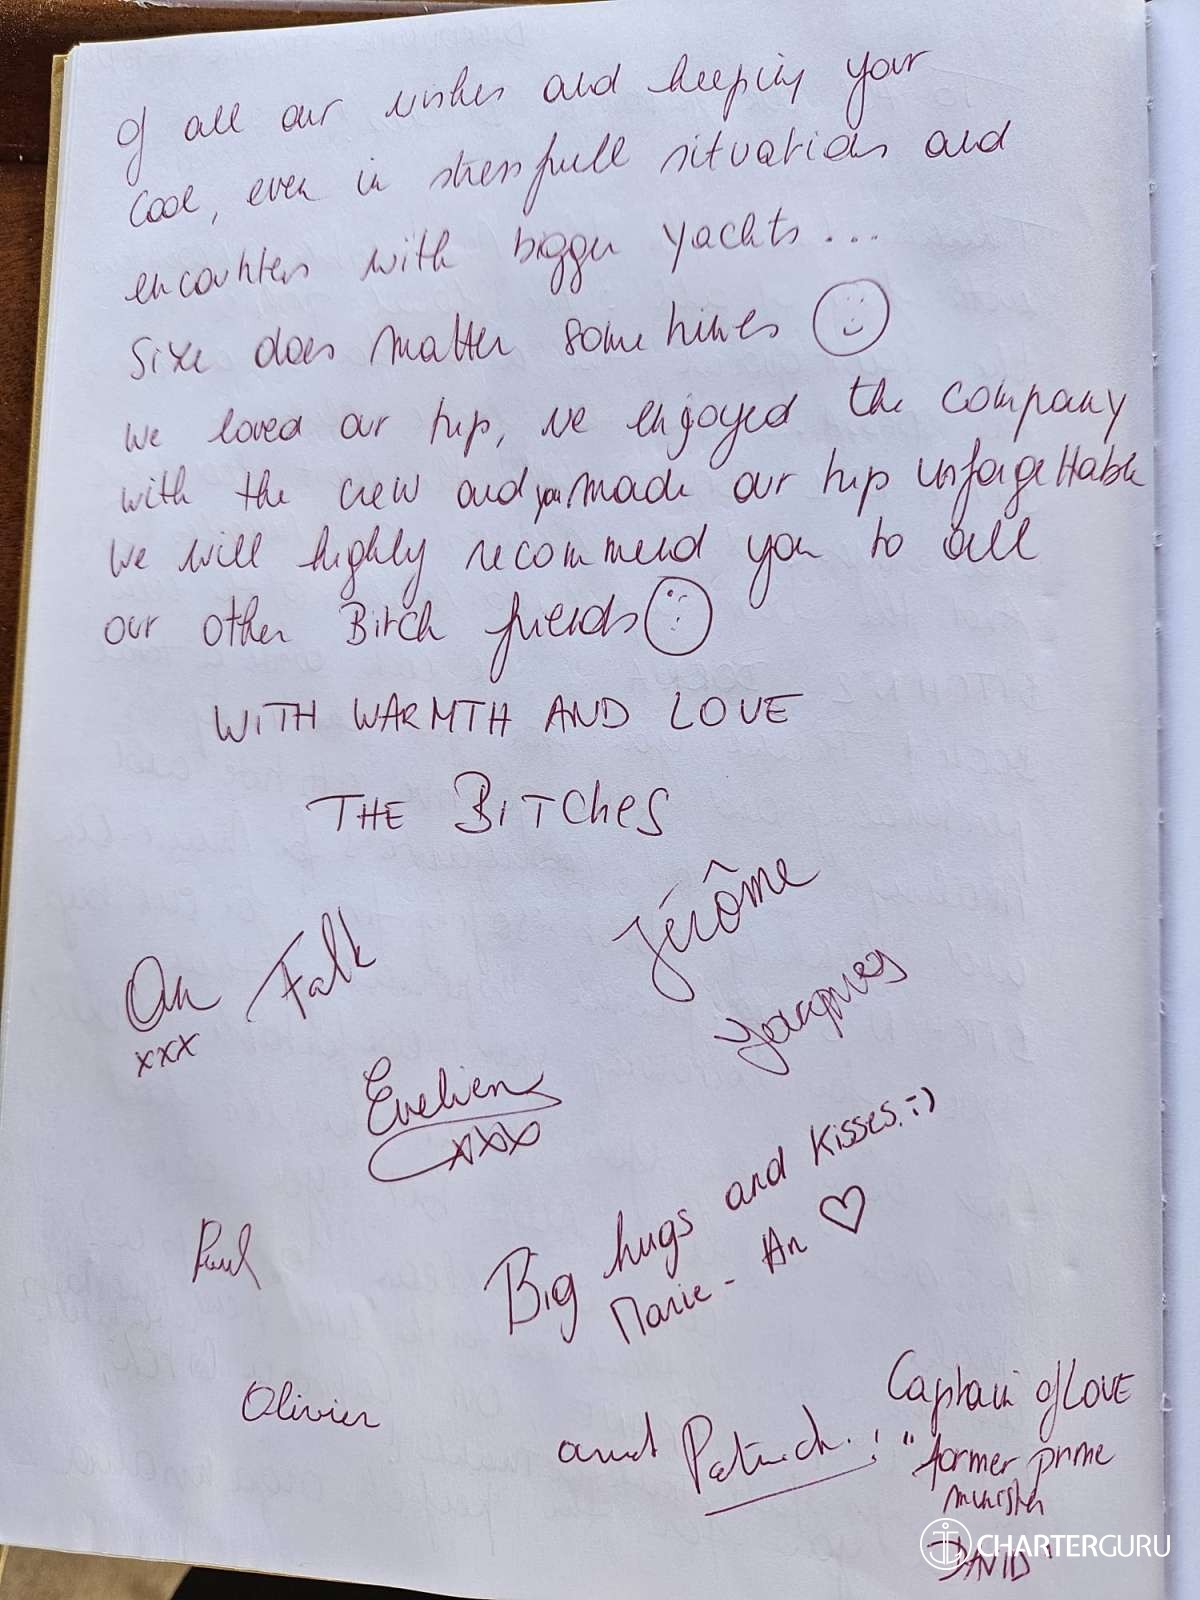 of all our wishes and keeping your
cool, even in stressfull situations and
encounters with bigger yachts...
Size does matter sometimes
We loved our trip, we enjoyed the company
with the crew and you made our trip unforgettable
We will highly recommend you to all
our other Bitch friends
WITH WARMTH AND LOVE
THE BITChES
An Falk
xxx
Jérôme
Jacques
Evelien
xxx
Big hugs and kisses. :-)
Marie-An
Paul
Olivier
and Patrick. !
Captain of LOVE
"former prime
minister
DAVID"
CHARTERGURU